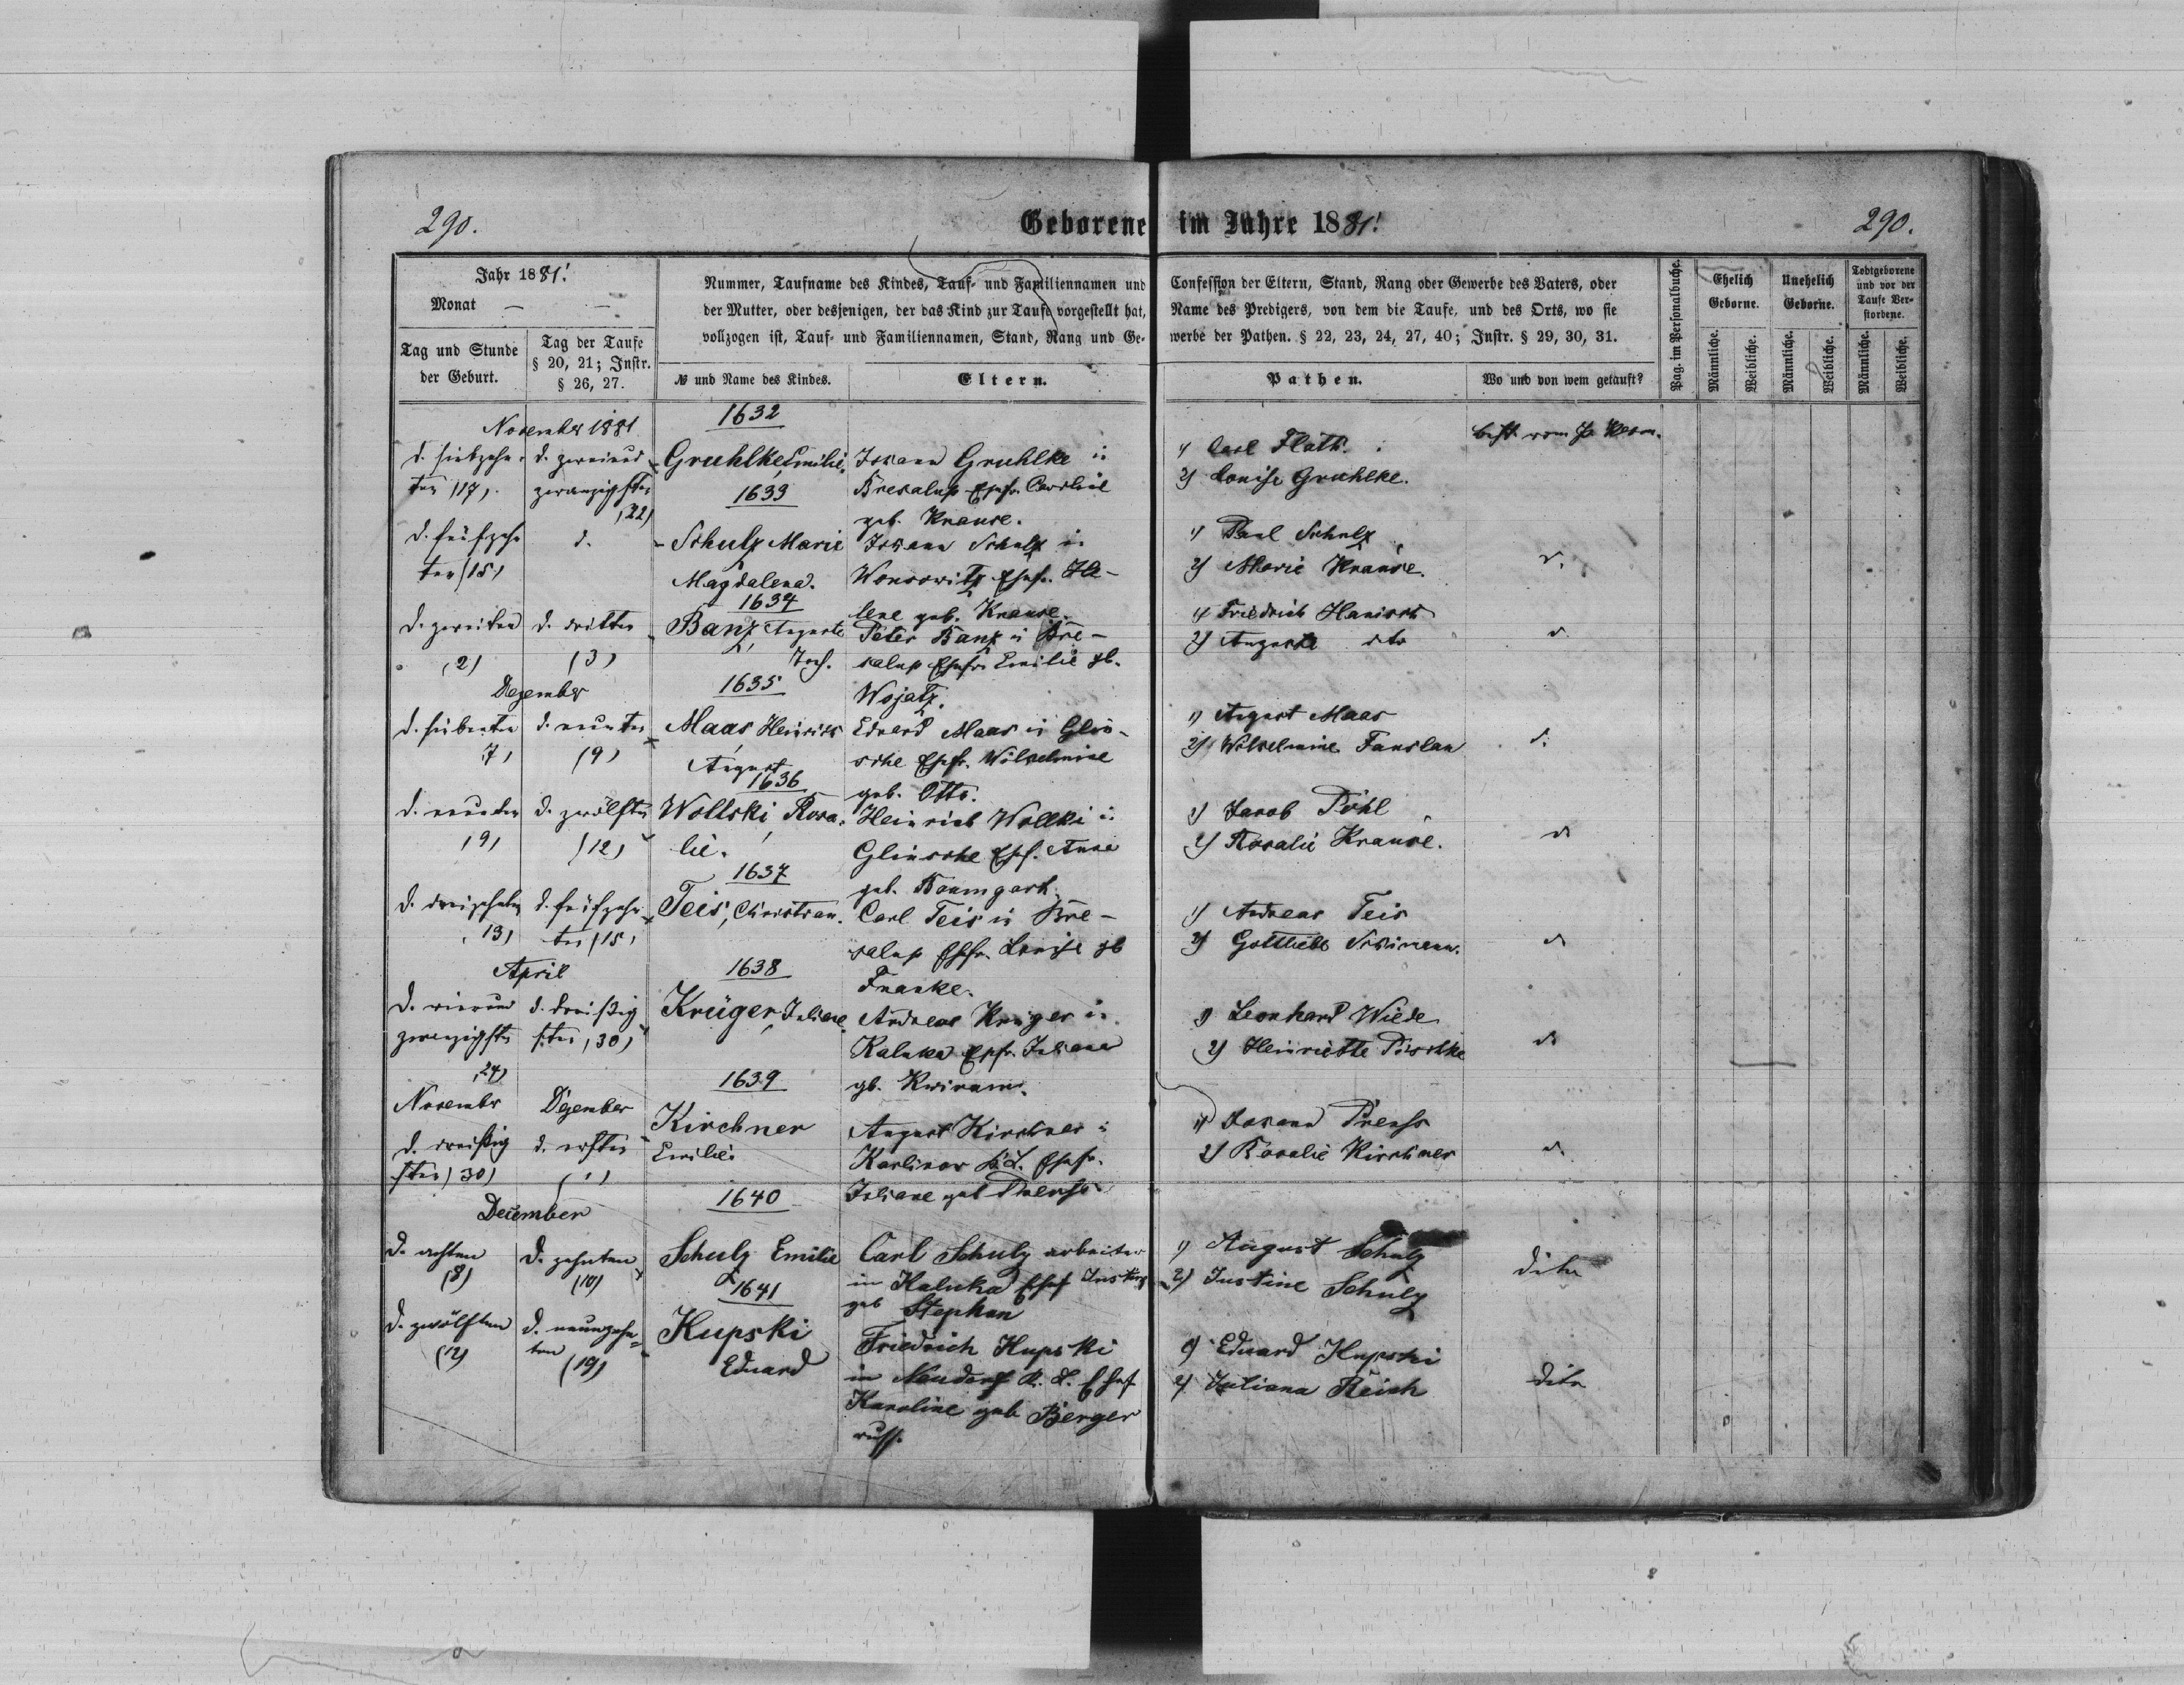 290.
Geborene im Jahre 1881.
290.
Jahr 1881.
Monat — —
Tag und Stunde der Geburt.
Tag der Taufe § 20, 21; Instr. § 26, 27.
Nummer, Taufname des Kindes, Tauf- und Familiennamen und
der Mutter, oder desjenigen, der das Kind zur Taufe vorgestellt hat,
vollzogen ist, Tauf- und Familiennamen, Stand, Rang und Ge-
№ und Name des Kindes.
Eltern.
Confession der Eltern, Stand, Rang oder Gewerbe des Vaters, oder
Name des Predigers, von dem die Taufe, und des Orts, wo sie
werbe der Pathen. § 22, 23, 24, 27, 40; Instr. § 29, 30, 31.
Pathen.
Wo und von wem getauft?
Pag. im Personalbuche.
Ehelich Geborne.
Unehelich Geborne.
Todtgeborene und vor der Taufe Verstorbene.
Männliche.
Weibliche.
Männliche.
Weibliche.
Männliche.
Weibliche.
November 1881
d. siebzehn-
ten (17).
d. zweiund
zwanzigsten
(22)
1632
Gruhlke, Emilie.
Johann Gruhlke in
Bresalup Ehefr. Caroline
geb. Krause.
1) Carl Flath.
2) Louise Gruhlke.
d. fünfzehn
ten (15)
d.
1633
Schulz Marie
Magdalena.
Johann Schulz in
Wonsowitz Ehefr. He-
lene geb. Krause.
1) Paul Schulz
2) Marie Krause.
d.
d. zweiten
(2)
d. dritten
(3)
1634
Banz, Auguste
Peter Banz in Bre-
salup Ehefr. Emilie gb.
Wojatz.
1) Friedrich Hanisch
2) Auguste dto
d.
Dezember
d. siebenten
7)
d. neunten
(9)
1635
Maas Heinrich
August
Eduard Maas in Glin-
sche Ehefr. Wilhelmine
geb. Otto.
1) August Maas
2) Wilhelmine Fanslau
d.
d. neunten
(9)
d. zwölften
(12)
1636
Wollski Rosa-
lie.
Heinrich Wollki in
Glinsche Ehef. Anna
geb. Baumgart.
1) Jacob Pohl
2) Rosalie Krause.
d.
d. dreizehnten
13)
d. fünfzehn
ten (15)
1637
Teis, Christian.
Carl Teis in Bre-
salup Ehefr. Louise gb
Franke.
1) Andreas Teis
2) Gottliebe
d.
April
d. vierund
zwanzigsten
24)
d. dreißig
sten (30)
1638
Krüger Juliane.
Andreas Krüger in
Kaluka Ehefr. Juliana
gb. Kwiram.
1) Leonhard Wiede
2) Henriette Püschke
d.
November
d. dreißig
sten (30)
Dezember
d. ersten
(1)
1639
Kirchner
Emilie.
August Kirchner in
Ehefr.
Juliane geb Preuss
1) Johann Preuss
2) Rosalie Kirschner
d.
December
d. achten
(8)
d. zehnten
(10)
1640
Schulz Emilie
Carl Schulz arbeiter
in Kaluka Ehef Justine
geb Stephan
1) August Schulz
2) Justine Schulz
dito
d. zwölften
(12)
d. neunzehn-
ten (19)
1641
Kupski
Eduard
Friedrich Kupski
in Neudorf K. L. Ehef
Karoline geb Berger
1) Eduard Kupski
2) Juliana Reich
dito